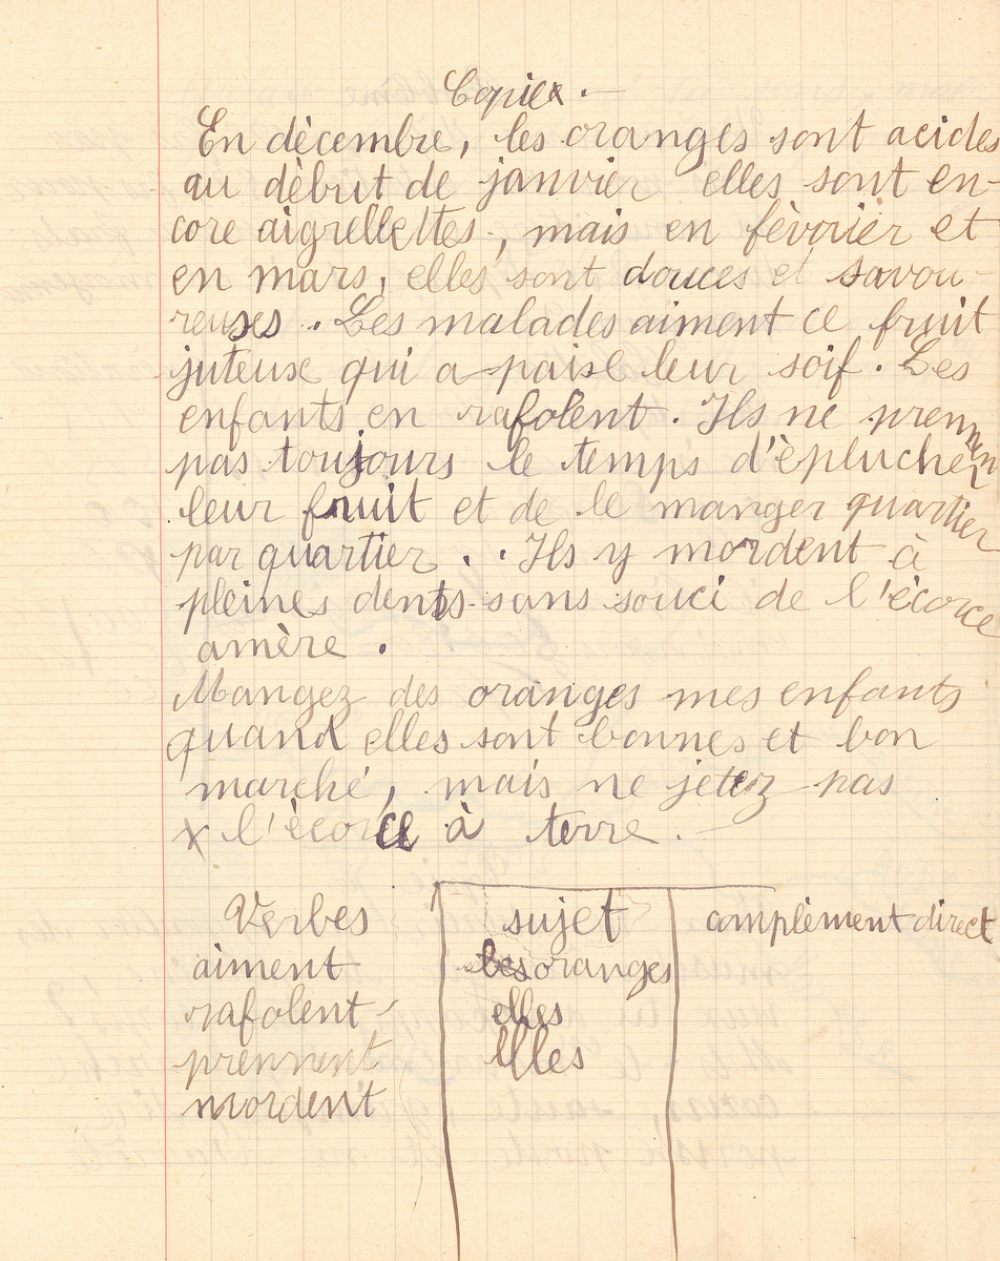 Copie .
En dècembre, les oranges sont acides
au dèbut de janvier elles sont en-
core aigrellettes, mais en fèvrier et
en mars, elles sont douces et savou-
reuses . Les malades aiment ce fruit
juteuse qui a paise leur soif . Les
enfants en rafolent . Ils ne prennent
pas toujours le temps d'èplucher
leur fruit et de le manger quartier
par quartier . . Ils y mordent à
pleines dents sans souci de l'ècorce
amère .
Mangez des oranges mes enfants
quand elles sont bonnes et bon
marché, mais ne jetez pas
x l'ècorce à terre .
Verbes sujet complèment direct
aiment les oranges
rafolent elles
prennent Elles
mordent